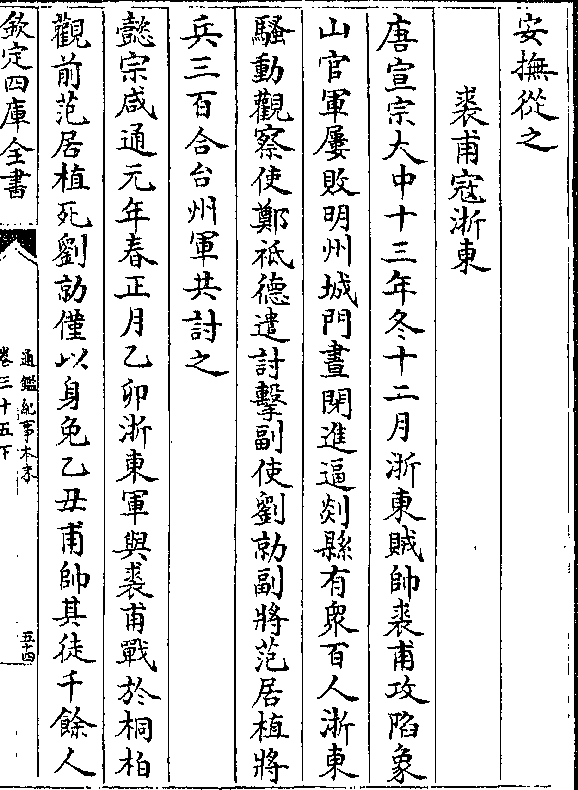 安撫從之
裘甫寇浙東
唐宣宗大中十三年冬十二月浙東賊帥裘甫攻陷象
山官軍屢敗明州城門晝閉進逼剡縣有衆百人浙東
騷動觀察使鄭祗德遣討擊副使劉勍副將范居植將
兵三百合台州軍共討之
懿宗咸通元年春正月乙卯浙東軍與裘甫戰於桐柏
觀前范居植死劉勍僅以身免乙丑甫帥其徒千餘人
欽定四庫全書
通鑑紀事本末
卷三十五下
五十四